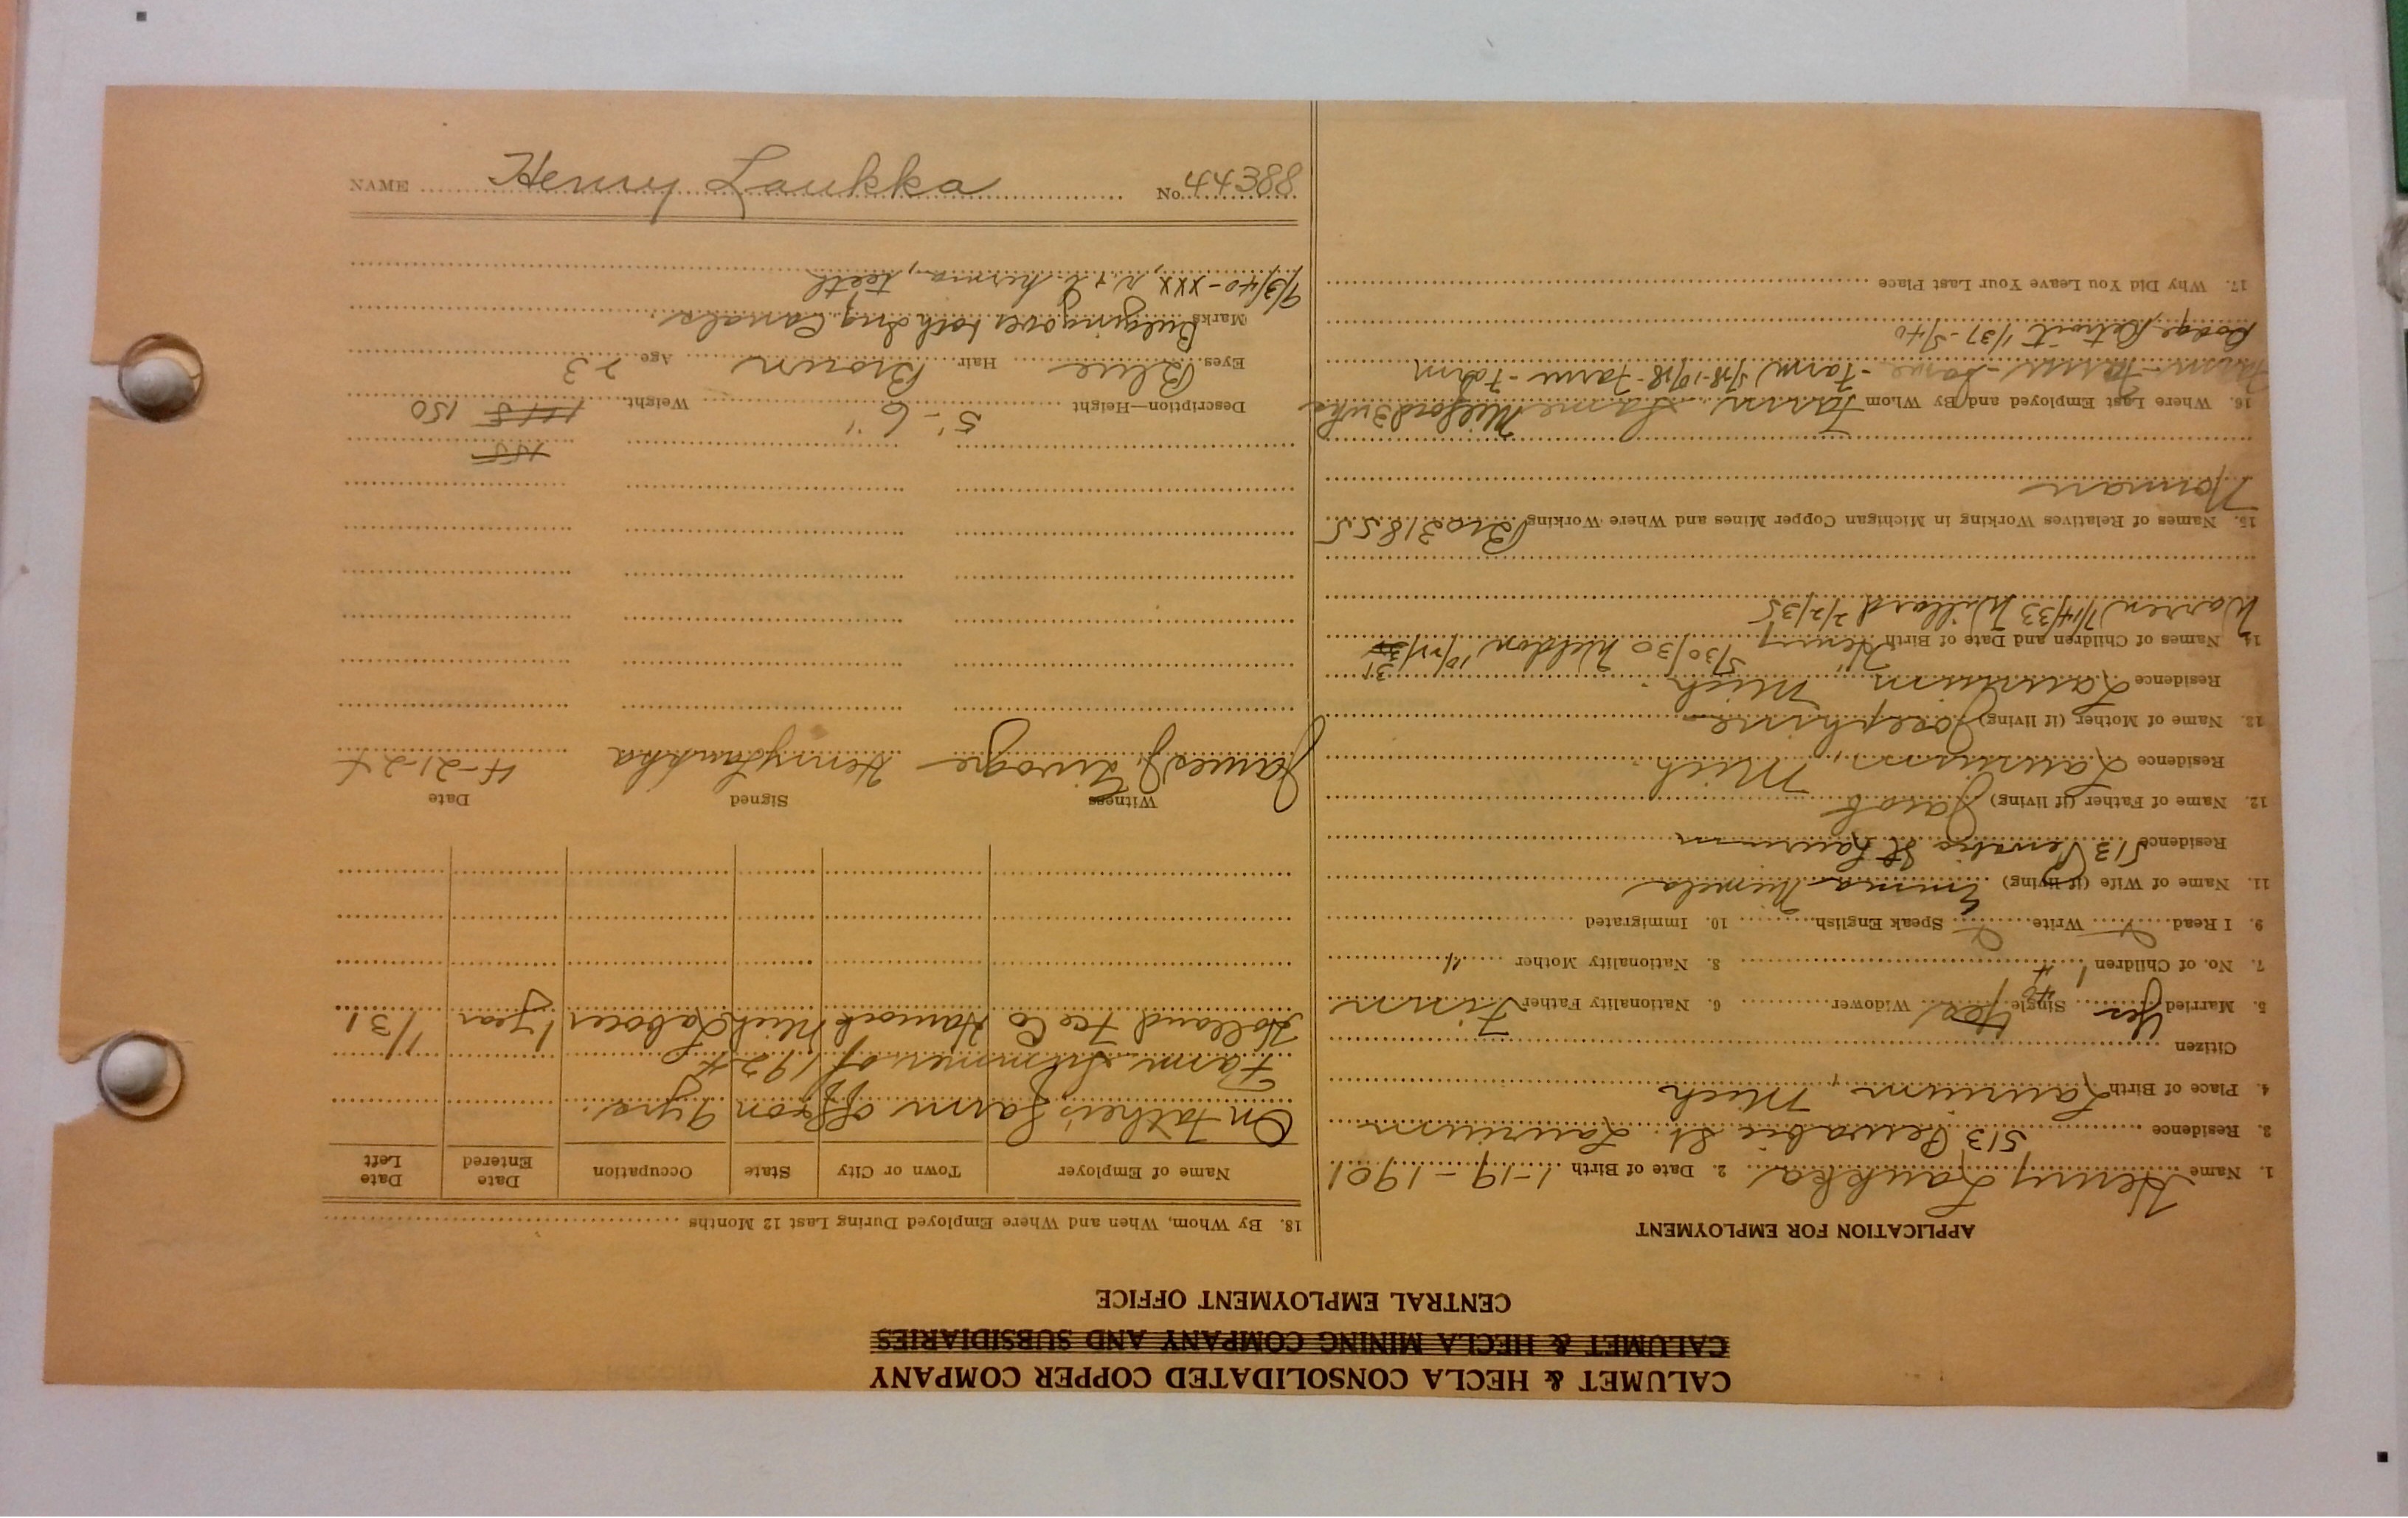 CALUMET & HECLA CONSOLIDATED COPPER COMPANY
CALUMET & HECLA MINING COMPANY AND SUBSIDIARIES
CENTRAL EMPLOYMENT OFFICE
APPLICATION FOR EMPLOYMENT
1. Name Henry Laukka 2. Date of Birth 1-19-1901
3. Residence 513 Pewabic St. Laurium
4. Place of Birth Laurium, Mich
Citizen
5. Married Yes Single Yes Widower 6. Nationality Father Finn
7. No. of Children 4 8. Nationality Mother "
9. I Read Write Speak English 10. Immigrated
11. Name of Wife (if living) Emma Niemela
Residence 513 Pewabic St Laurium
12. Name of Father (if living) Jacob
Residence Laurium, Mich
13. Name of Mother (if living) Josephine
Residence Laurium, Mich.
14. Names of Children and Date of Birth Henry 5/30/30 Weldon 10/21/31
Warren 7/14/33 Willard 2/2/35
15. Names of Relatives Working in Michigan Copper Mines and Where Working Bro 318 S.S.
Norman
16. Where Last Employed and By Whom Farm Same
Farm - Farm - Same - Farm 5/18-10/18 - Farm - Farm
Dodge, Detroit 1/37 - 5/40
17. Why Did You Leave Your Last Place
18. By Whom, When and Where Employed During Last 12 Months
Name of Employer Town or City State Occupation Date Entered Date Left
On father's farm off & on 2 yrs.
Farm Summer of 1924
Holland Fce Co Hancock Mich Laborer 1 year 1/31
Witness Signed Date
James J. Henry Laukka 4-21-24
155
Description—Height 5'-6" Weight 150
Eyes Blue Hair Brown Age 23
Marks Bulging over both Ing. Canals.
9/3/40 - xxx, r + l hernia, teeth
NAME Henry Laukka No. 44388